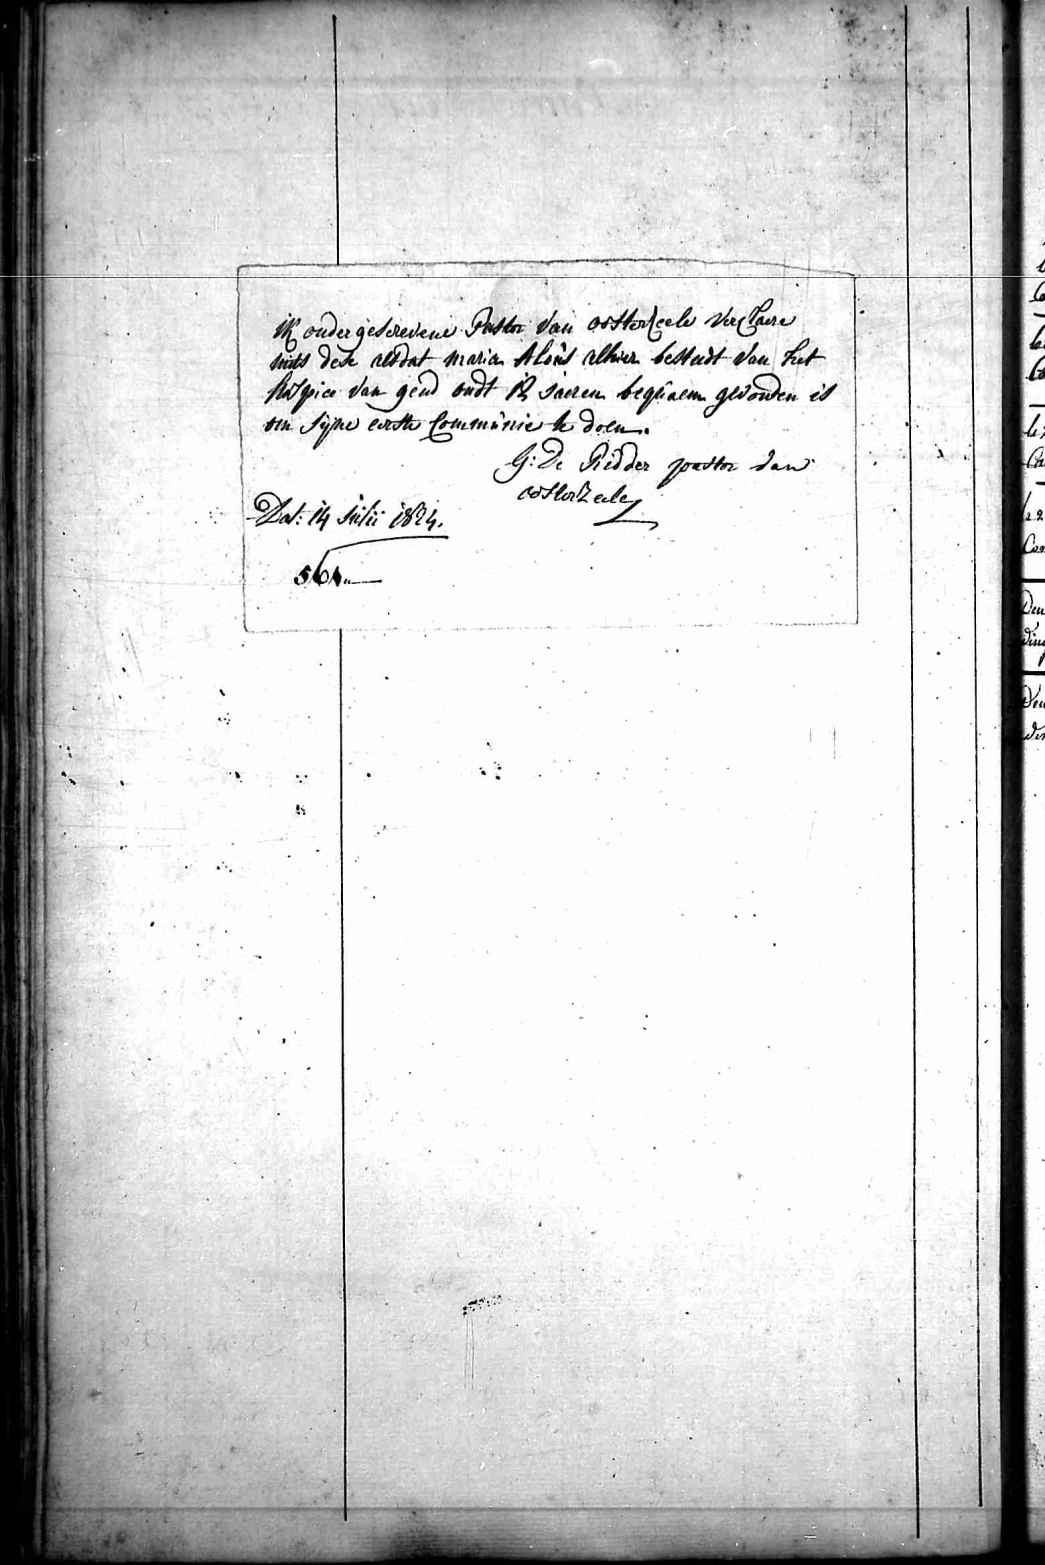 ik ondergeschrevene Pastor van oosterzeele verclaere
mits dese als dat maria Aloüs alhier besteedt van het
hospice van gend oudt 12 jaeren bequaem gevonden is
om syne eerste Commünie te doen.
G: De Ridder pastor van
oosterzeele
Dat: 14 julii 1824.